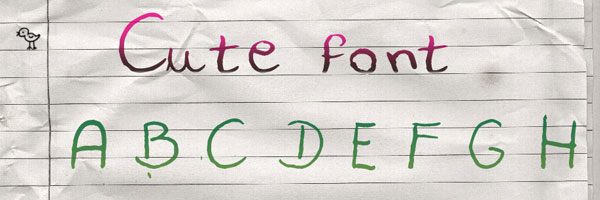 Cute font
A B C D E F G H